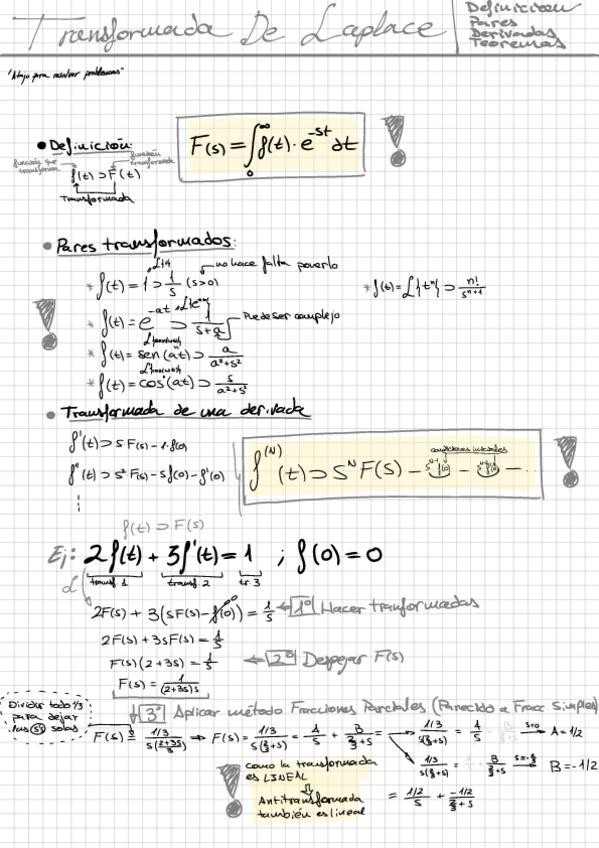 Transformada De Laplace
Definición
Pares
Derivadas
Teoremas
"Atajo para resolver problemas"
• Definición:
función que transforma
función transformada
f(t) ⊃ F(t)
Transformada
F(s) = ∫₀^∞ f(t) · e^{-st} dt
!
• Pares transformados:
* f(t) = 1 ⊃ 1/s (s>0)
no hace falta ponerlo
* f(t) = ℒ{t^n} ⊃ n!/s^{n+1}
!
* f(t) = e^{-at} ⊃ 1/(s+a)
Puede ser complejo
* f(t) = sen(at) ⊃ a/(a²+s²)
* f(t) = cos(at) ⊃ s/(a²+s²)
• Transformada de una derivada
f'(t) ⊃ s F(s) - 1·f(0)
f''(t) ⊃ s² F(s) - s f(0) - f'(0)
⋮
condiciones iniciales
f^{(N)}(t) ⊃ S^N F(S) - s^{N-1} f(0) - s^{N-2} f'(0) - ...
!
f(t) ⊃ F(s)
Ej: 2f(t) + 3f'(t) = 1 ; f(0) = 0
transf. 1 transf. 2 tr 3
ℒ
2F(s) + 3(sF(s) - f(0)) = 1/s ← 1º Hacer tranformadas
2F(s) + 3sF(s) = 1/s
F(s)(2+3s) = 1/s ← 2º Despejar F(s)
F(s) = 1/((2+3s)s)
↓ 3º Aplicar método Fracciones Parciales (Parecido a Fracc Simples)
Dividir todo 1/3
para dejar
las (s) solas
F(s) = (1/3)/(s((2+3s)/3)) → F(s) = (1/3)/(s(2/3+s)) = A/s + B/(2/3+s)
(1/3)/(s(2/3+s)) = A/s + B/(2/3+s) s=0 → A = 1/2
(1/3)/(s(2/3+s)) = A/s + B/(2/3+s) s=-2/3 → B = -1/2
= (1/2)/s + (-1/2)/(2/3+s)
!
como la transformada
es LINEAL
⇓
Antitransformada
también es lineal